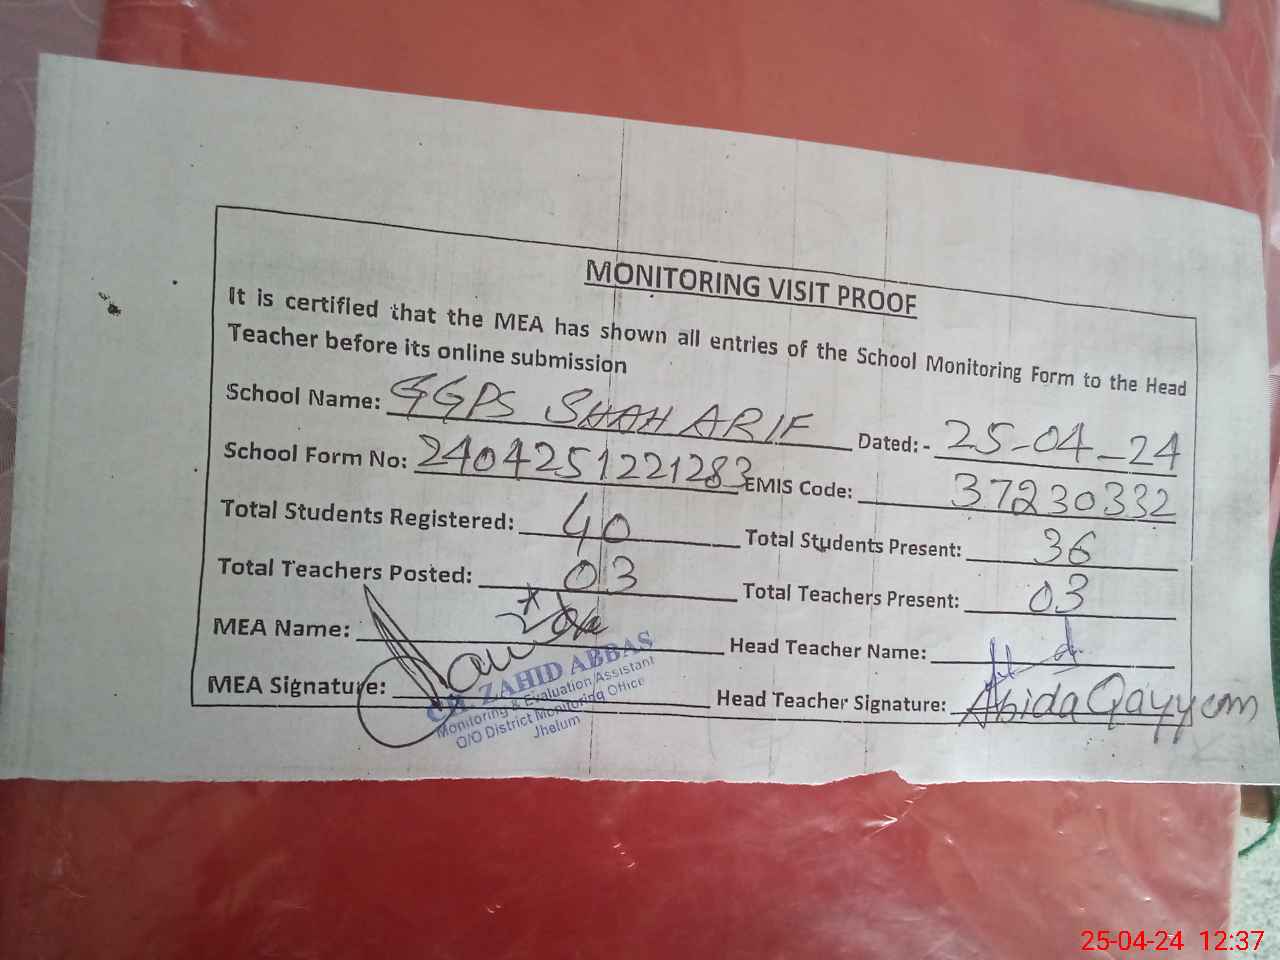 MONITORING VISIT PROOF
It is certified that the MEA has shown all entries of the School Monitoring Form to the Head
Teacher before its online submission
School Name: GGPS SHAH ARIF Dated:- 25-04-24
School Form No: 2404251221283 EMIS Code: 37230332
Total Students Registered: 40 Total Students Present: 36
Total Teachers Posted: 03 Total Teachers Present: 03
MEA Name: Head Teacher Name:
MEA Signature: Head Teacher Signature: Abida Qayyum
CH. ZAHID ABBAS
Monitoring & Evaluation Assistant
O/O District Monitoring Office
Jhelum
25-04-24 12:37